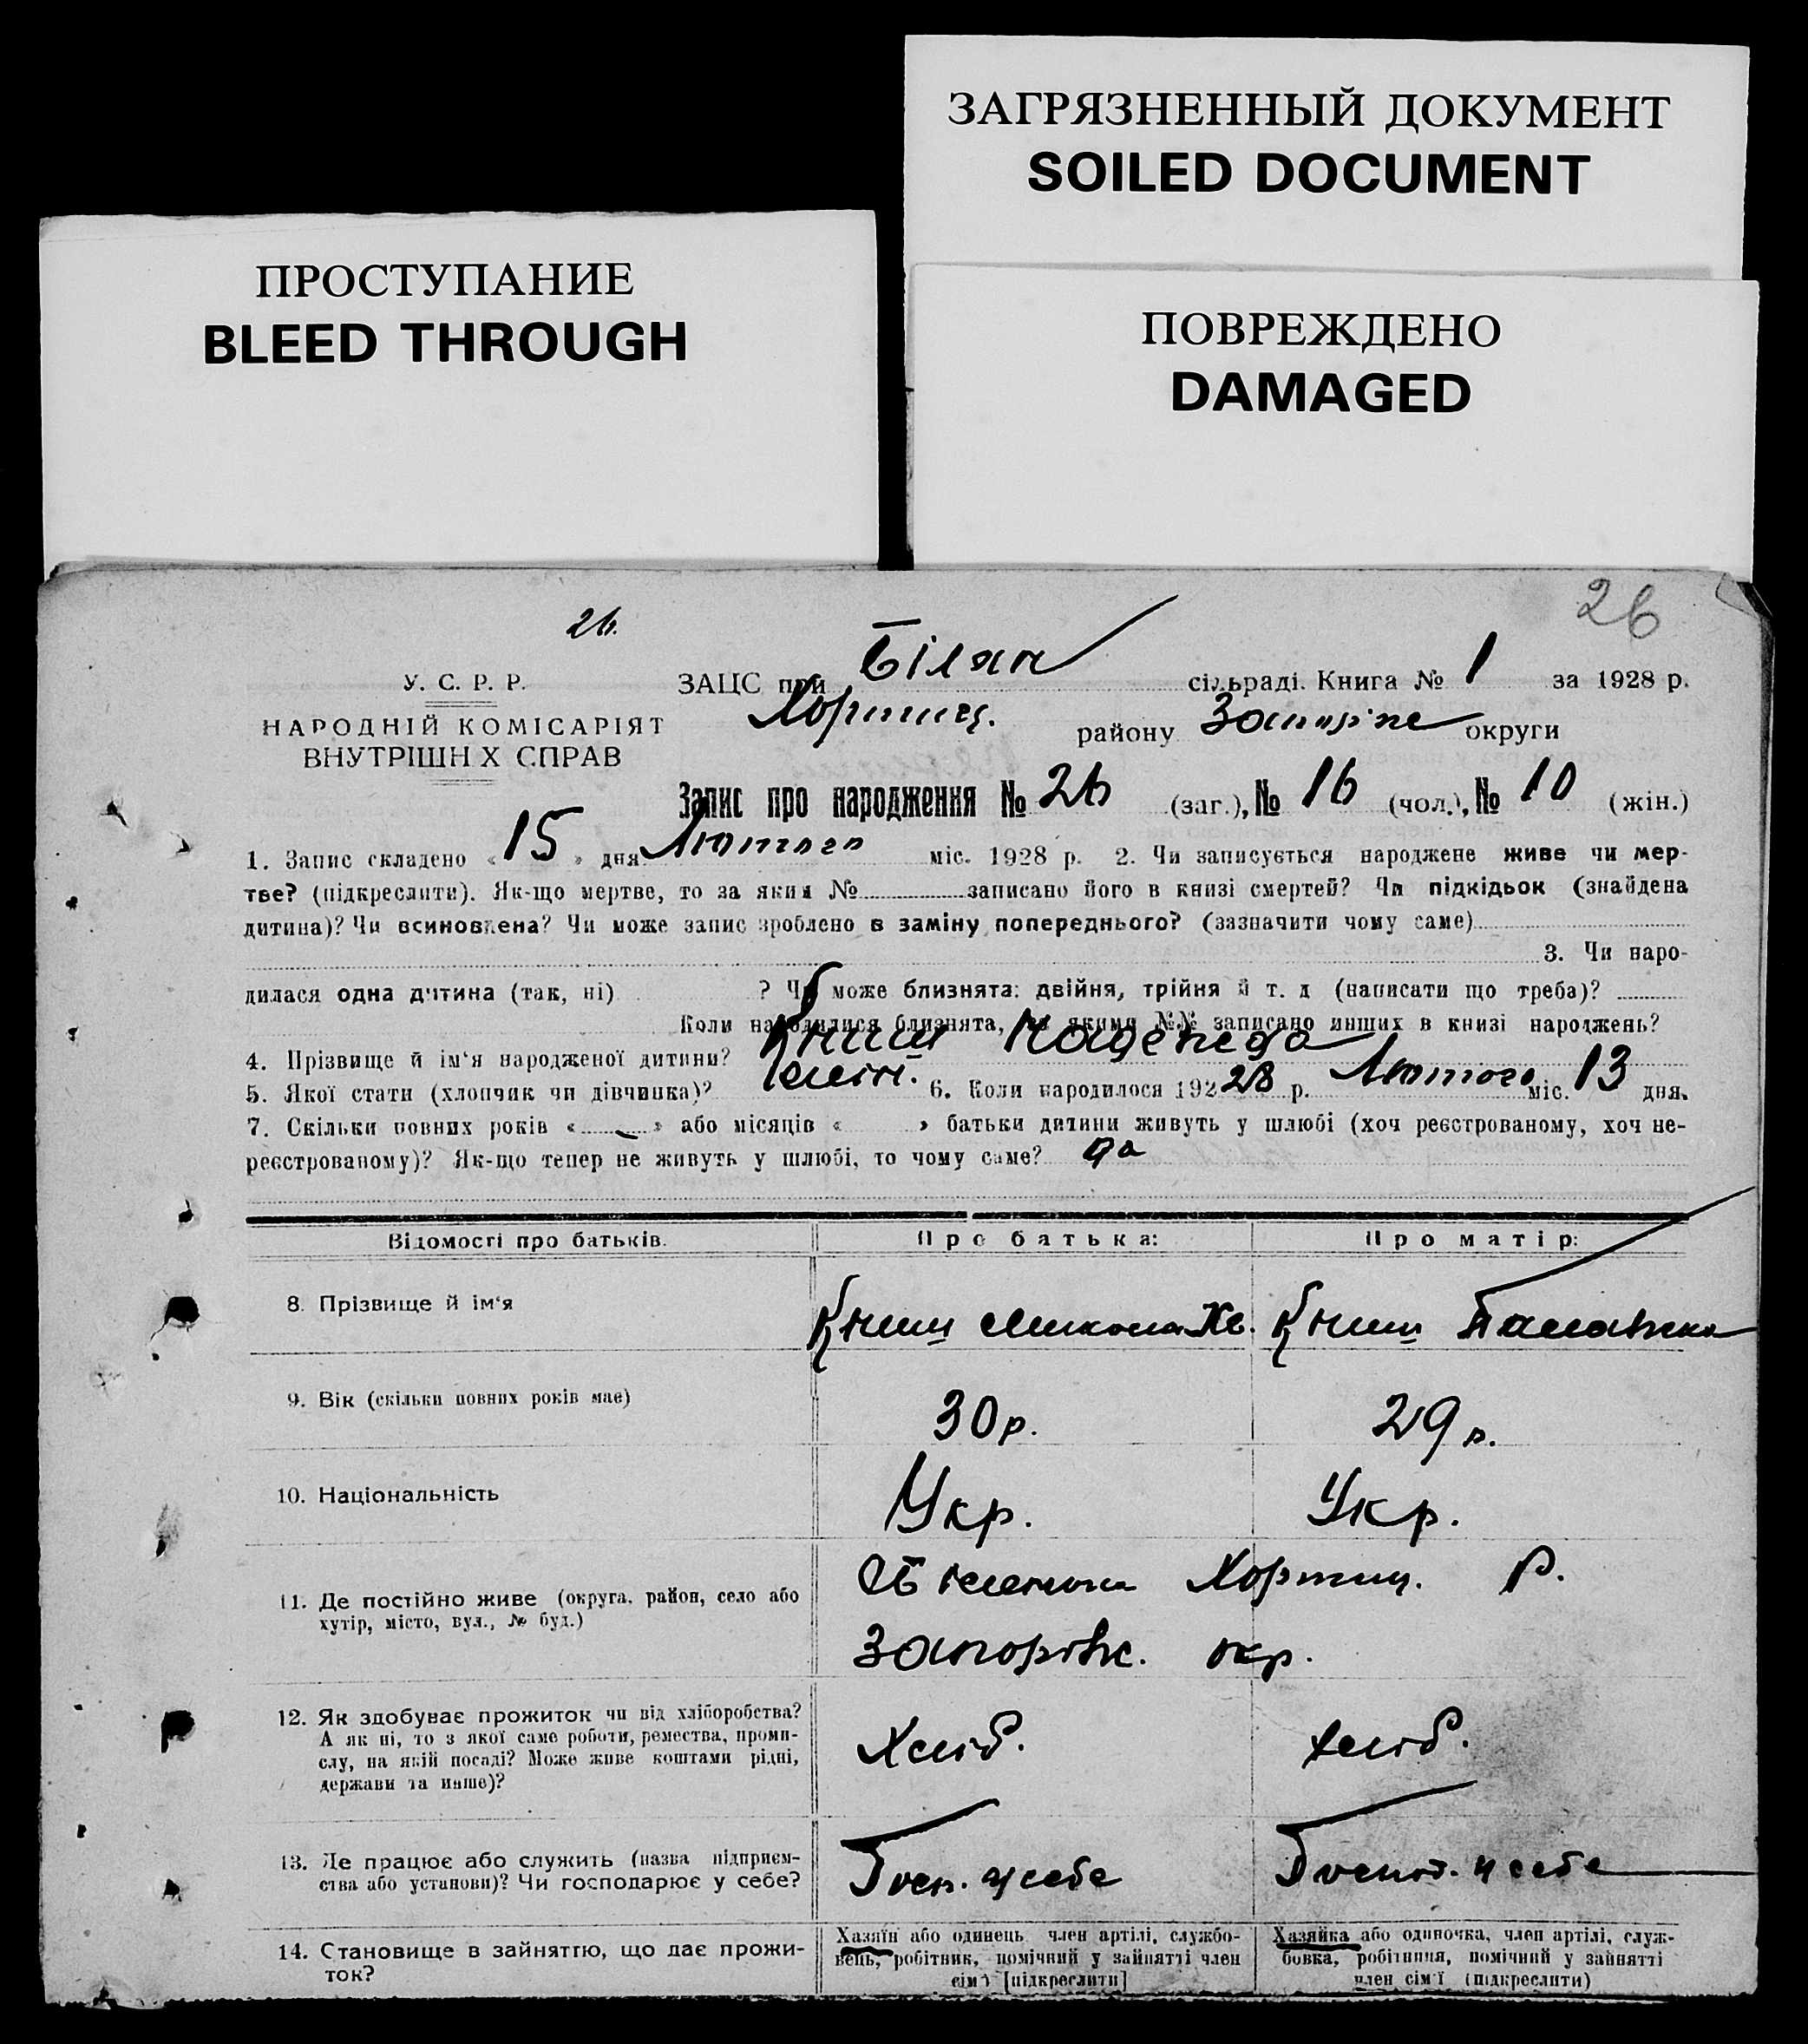 ЗАГРЯЗНЕННЫЙ ДОКУМЕНТ
SOILED DOCUMENT
ПРОСТУПАНИЕ
BLEED THROUGH
ПОВРЕЖДЕНО
DAMAGED
26
26.
У. С. Р. Р.
НАРОДНІЙ КОМІСАРІЯТ
ВНУТРІШН Х СПРАВ
ЗАЦС при Білян сільраді. Книга № 1 за 1928 р.
Хортиц. району Запоріж округи
Запис про народження № 26 (заг.), № 16 (чол.), № 10 (жін.)
1. Запис складено « 15 » дня Лютого міс. 1928 р. 2. Чи записується народжене живе чи мер-
тве? (підкреслити). Як-що мертве, то за яким № записано його в книзі смертей? Чи підкідьок (знайдена
дитина)? Чи всиновлена? Чи може запис зроблено в заміну попереднього? (зазначити чому саме)
3. Чи наро-
дилася одна дитина (так, ні) ? Чи може близнята: двійня, трійня й т. д (написати що треба)?
Коли народилися близнята, за якими №№ записано инших в книзі народжень?
4. Прізвище й ім'я народженої дитини? Книш Надежда
5. Якої стати (хлопчик чи дівчинка)? 6. Коли народилося 192 28 р. Лютого міс. 13 дня.
7. Скільки повних років « » або місяців « » батьки дитини живуть у шлюбі (хоч реєстрованому, хоч не-
реєстрованому)? Як-що тепер не живуть у шлюбі, то чому саме? да
Відомості про батьків. Про батька: Про матір:
8. Прізвище й ім'я Книш Микола Книш
9. Вік (скільки повних років має) 30 р. 29 р.
10. Національність Укр. Укр.
11. Де постійно живе (округа, район, село або
хутір, місто, вул., № буд.)
Хортиц. Р.
Запоріж. окр.
12. Як здобуває прожиток чи від хліборобства?
А як ні, то з якої саме роботи, ремества, проми-
слу, на якій посаді? Може живе коштами рідні,
держави та инше)?
Хліб. хліб.
13. Де працює або служить (назва підприєм-
ства або установи)? Чи господарює у себе?
Госп. у себе Господ. у себе
14. Становище в зайняттю, що дає прожи-
ток?
Хазяїн або одинець член артілі, службо-
вець, робітник, помічний у зайнятті член
сім'ї [підкреслити]
Хазяйка або одиночка, член артілі, служ-
бовка, робітниця, помічний у зайнятті
член сім'ї (підкреслити)